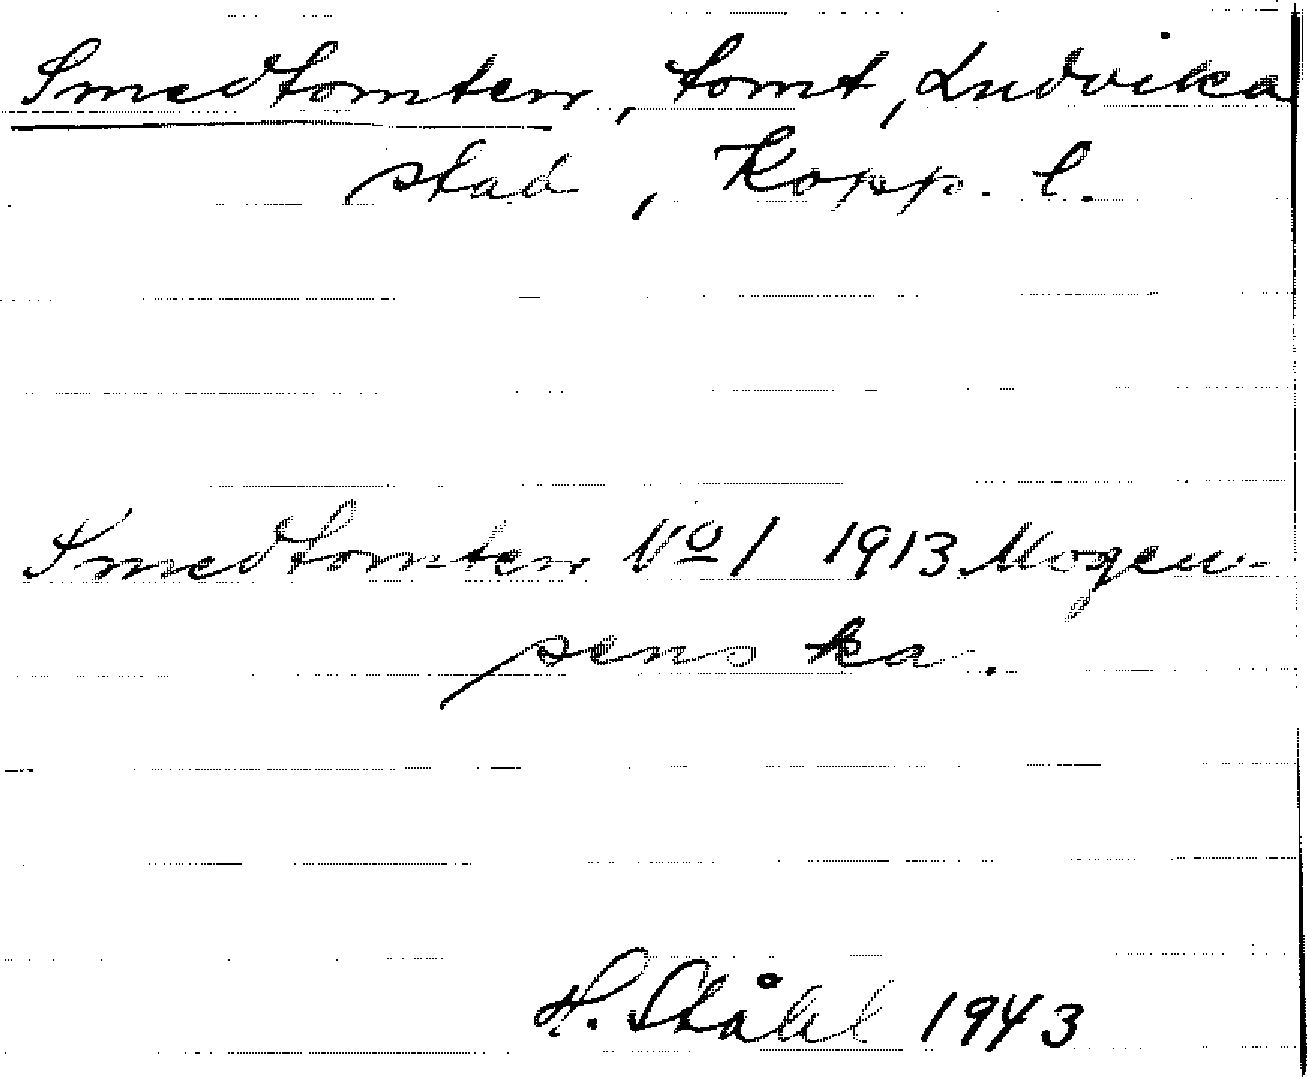 Smedtomten, tomt, Ludvika
stad, Kopp. l.
Smedtomten No 1 1913 Mogen-
sens ka.
H. Ståhl 1943